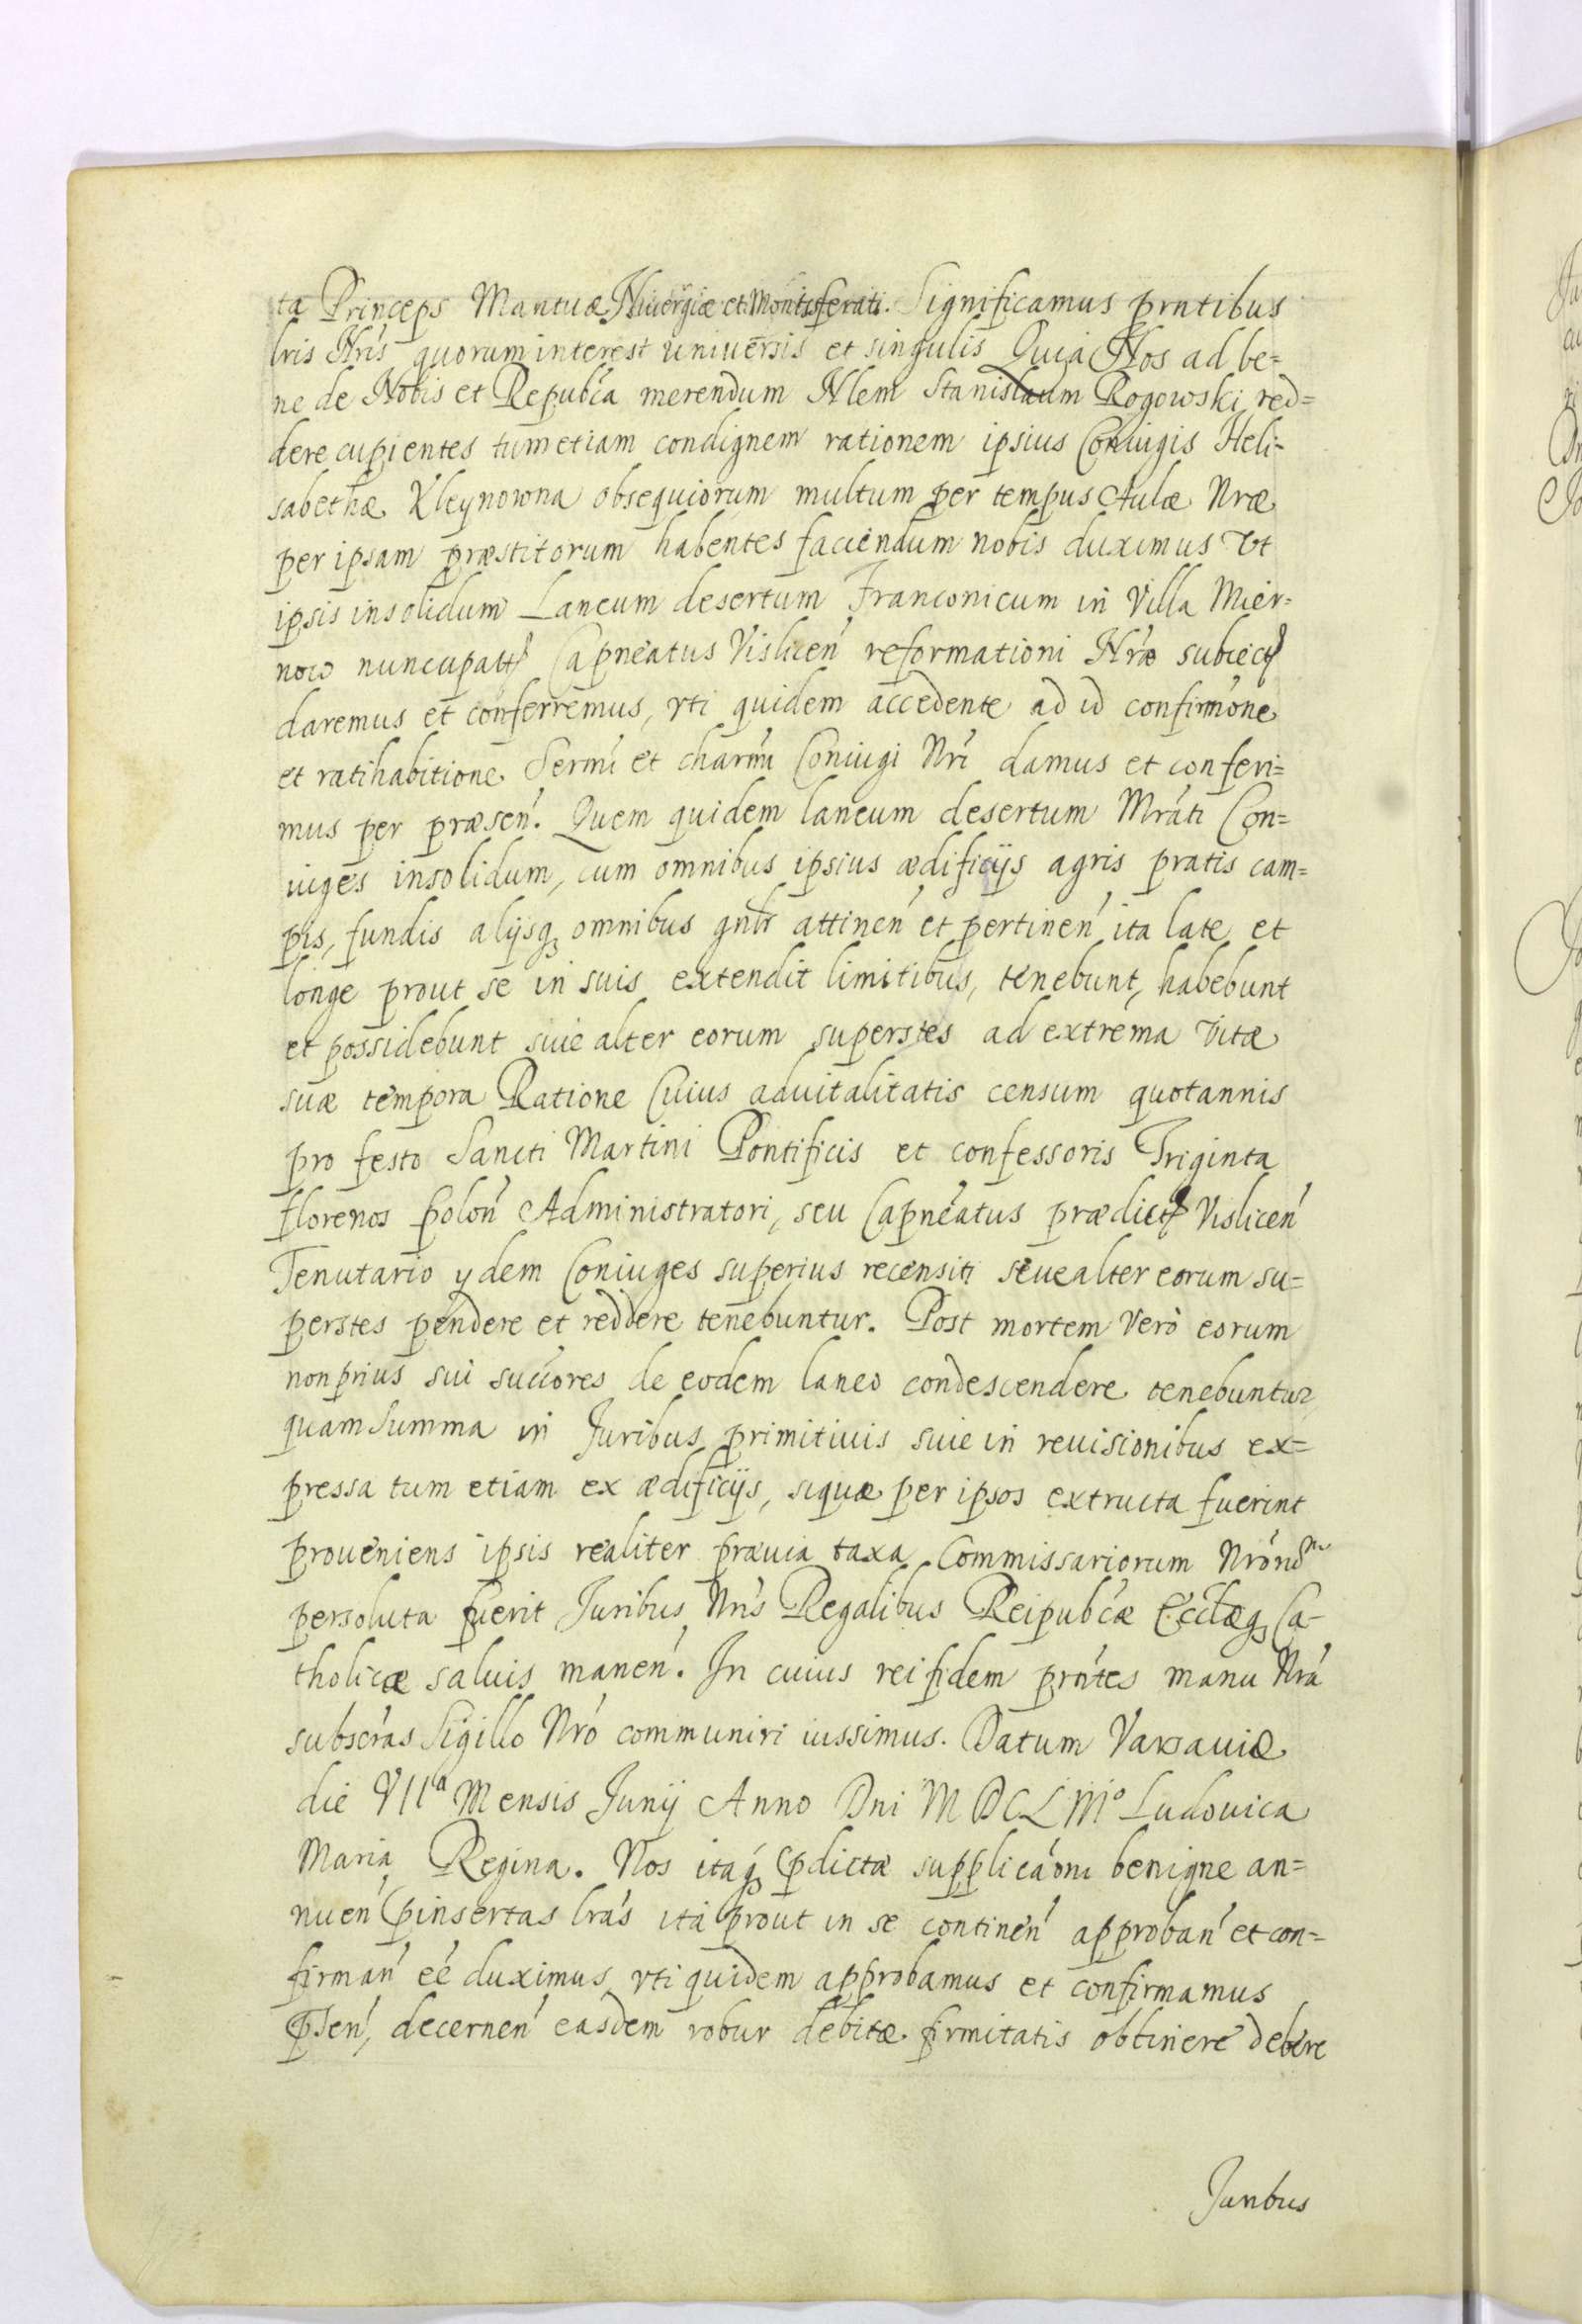 ta Princeps Mantuæ Niuergiæ et Montisferati. Significamus prntibus
lris Nris quorum interest universis et singulis Quia Nos ad be=
ne de Nobis et Repubca merendum Nlem Stanislaum Rogowski red=
dere cupientes tum etiam condignem rationem ipsius Coniugis Heli-
sabethæ Kleynowna obsequiorum multum per tempus Aulæ Nræ
per ipsam præstitorum habentes faciendum nobis duximus Vt
ipsis insolidum Laneum desertum Franconicum in Villa Mier-
now nuncupatt Capneatus Vislicen reformationi Nræ subiect
daremus et conferremus, vti quidem accedente ad id confirmone
et ratihabitione Sermi et charmi Coniugi Nri damus et conferi=
mus per præsen. Quem quidem laneum desertum Mrati Con=
iuges insolidum, cum omnibus ipsius ædificijs agris pratis cam=
pis, fundis alijsq omnibus gnlr attinen et pertinen ita late et
longe prout se in suis extendit limitibus, tenebunt, habebunt
et possidebunt siue alter eorum superstes ad extrema vitæ
suæ tempora Ratione Cuius aduitalitatis censum quotannis
pro festo Sancti Martini Pontificis et confessoris Triginta
florenos polon Administratori, seu Capneatus prædict Vislicen
Tenutario ydem Coniuges superius recensiti seue alter eorum su=
perstes pendere et reddere tenebuntur. Post mortem Verò eorum
non prius sui succores de eodem laneo condescendere tenebuntur,
quam Summa in Juribus primitiuis siue in reuisionibus ex=
pressa tum etiam ex ædificijs, siquæ per ipsos extructa fuerint
proueniens ipsis realiter præuia taxa Commissariorum Nronom
persoluta fuerit Juribus Nris Regalibus Reipubcæ Ecclæq Ca-
tholicæ saluis manen. In cuius rei fidem prntes manu Nrá
subscras Sigillo Nró communiri iussimus. Datum Varsauiæ
die VIIa Mensis Junij Anno Dni MDCLIIIo Ludouica
Maria Regina. Nos itaq pdictæ supplicaoni benigne an=
nuen pinsertas lras ita prout in se continen approban et con=
firman eé duximus vti quidem approbamus et confirmamus
psen, decernen easdem robur debitæ firmitatis obtinere debere
Juribus